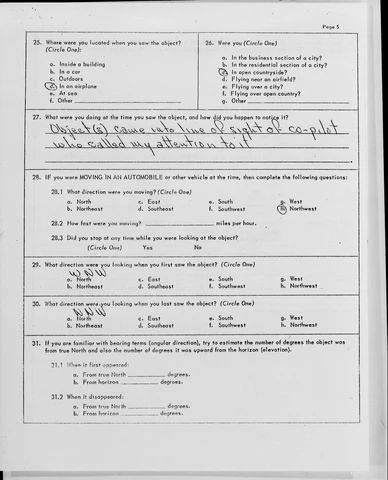 Page 5
25. Where were you located when you saw the object?
(Circle One):
a. Inside a building
b. In a car
c. Outdoors
d. In an airplane
e. At sea
f. Other
26. Were you (Circle One)
a. In the business section of a city?
b. In the residential section of a city?
c. In open countryside?
d. Flying near an airfield?
e. Flying over a city?
f. Flying over open country?
g. Other
27. What were you doing at the time you saw the object, and how did you happen to notice it?
Object(s) came into line of sight of co-pilot
who called my attention to it
28. IF you were MOVING IN AN AUTOMOBILE or other vehicle at the time, then complete the following questions:
28.1 What direction were you moving? (Circle One)
a. North c. East e. South g. West
b. Northeast d. Southeast f. Southwest h. Northwest
28.2 How fast were you moving? miles per hour.
28.3 Did you stop at any time while you were looking at the object?
(Circle One) Yes No
29. What direction were you looking when you first saw the object? (Circle One)
WNW
a. North c. East e. South g. West
b. Northeast d. Southeast f. Southwest h. Northwest
30. What direction were you looking when you last saw the object? (Circle One)
a. North c. East e. South g. West
b. Northeast d. Southeast f. Southwest h. Northwest
31. If you are familiar with bearing terms (angular direction), try to estimate the number of degrees the object was
from true North and also the number of degrees it was upward from the horizon (elevation).
31.1 When it first appeared:
a. From true North degrees.
b. From horizon degrees.
31.2 When it disappeared:
a. From true North degrees.
b. From horizon degrees.